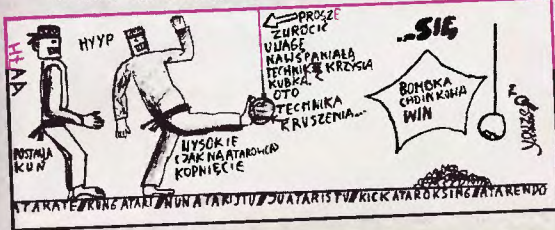 HYAA
HYYP
POSTAWA
KUN
WYSOKIE
(JAK NA ATAROWCA)
KOPNIĘCIE
PROSZĘ
ZWRÓCIĆ
UWAGĘ
NA WSPANIAŁĄ
TECHNIKĘ KRZYSIA
KUBKA.
OTO
TECHNIKA
KRUSZENIA...
...SIĘ
BOMBKA
CHOINKOWA
WIN
ATARATE//KUNG ATARI//NUN ATARIJTU//JU ATARISTU//KICKATAROKSING//ATARENDO